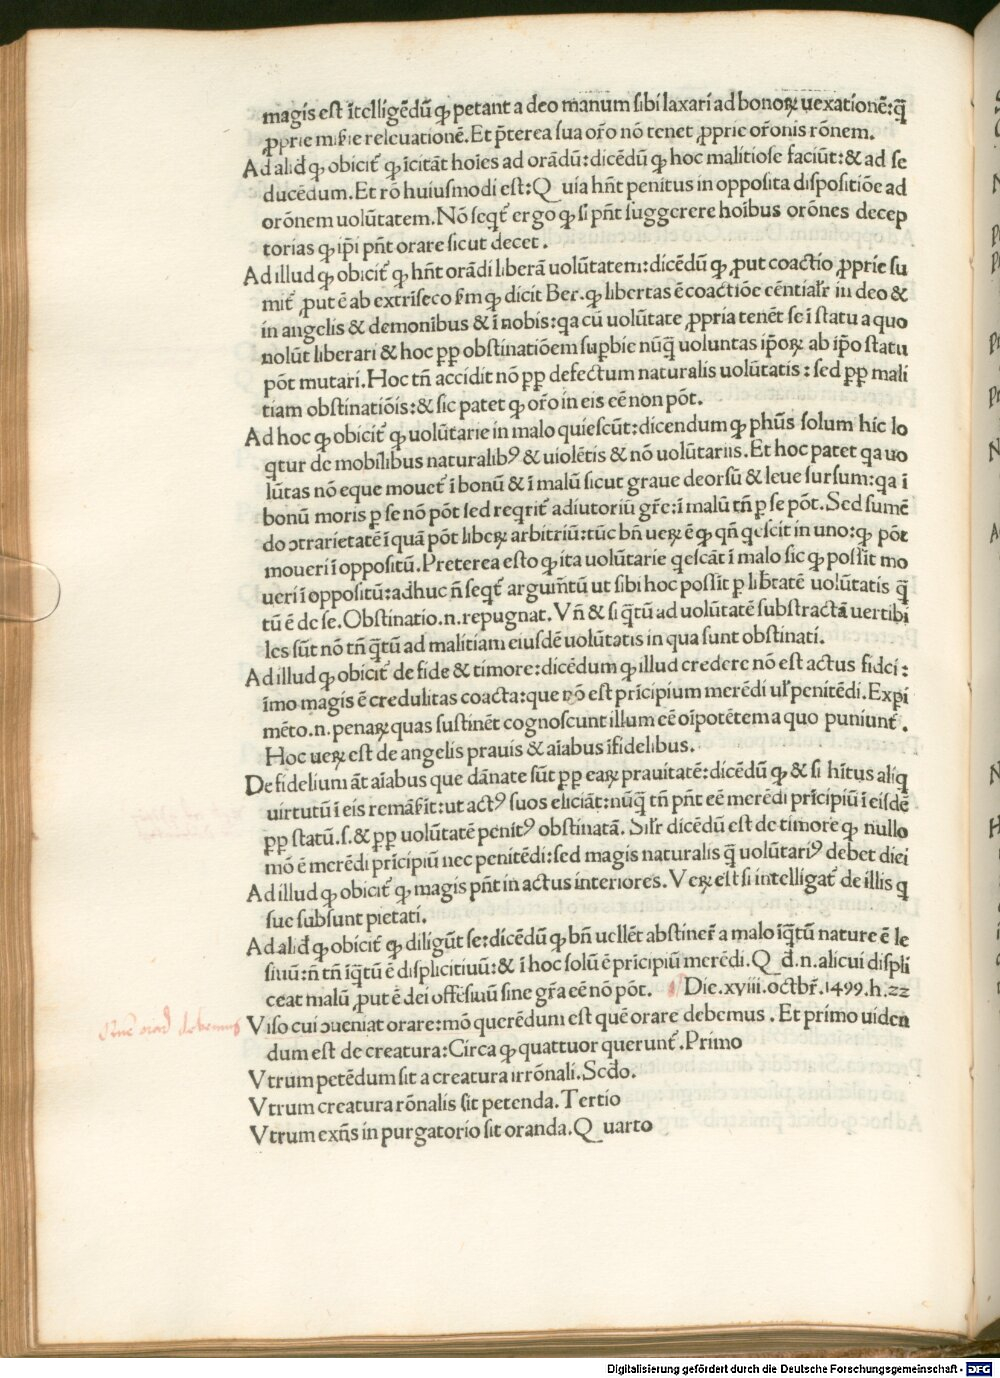 magis est ītelligēdū ꝙ petant a deo manum sibi laxari ad bonoꝝ uexationē: q̄
ꝓprie miẜie releuationē. Et p̄terea sua or̄o nō tenet ꝓprie or̄onis rōnem.
Ad aliđ ꝙ obicit̄ ꝙ īcitāt hoīes ad orādū: dicēdū ꝙ hoc malitiose faciūt: & ad se
ducēdum. Et rō huiusmodi est: Q uia hn̄t penitus in opposita dispositiōe ad
orōnem uolūtatem. Nō seqt̄ ergo ꝙ si pn̄t suggerere hoībus orōnes decep
torias ꝙ ip̄i pn̄t orare sicut decet.
Ad illud ꝙ obicit̄ ꝙ hn̄t orādi liberā uolūtatem: dicēdū ꝙ ꝓut coactio ꝓprie su
mit̄ ꝓut ē ab extrīseco ẜm ꝙ dicit Ber. ꝙ libertas ē coactiōe cēntialr̄ in deo &
in angelis & demonibus & ī nobis: qa cū uolūtate ꝓpria tenēt se ī statu a quo
nolūt liberari & hoc ꝑp obstinatiōem suꝑbie nūq̄ uoluntas ip̄oꝝ ab ip̄o statu
pōt mutari. Hoc tn̄ accidit nō ꝑp defectum naturalis uolūtatis: sed ꝑp mali
tiam obstinatiōis: & sic patet ꝙ or̄o in eis eē non pōt.
Ad hoc ꝙ obicit̄ ꝙ uolūtarie in malo quiescūt: dicendum ꝙ phūs solum hic lo
qtur de mobilibus naturalibꝰ & uiolētis & nō uolūtariis. Et hoc patet qa uo
lūtas nō eque mouet̄ ī bonū & ī malū sicut graue deorsū & leue sursum: qa ī
bonū moris ꝑ se nō pōt sed reqrit̄ adiutoriū gr̄e: ī malū tn̄ ꝑ se pōt. Sed sumē
do ↄtrarietatē ī quā pōt libeꝝ arbitriū: tūc bn̄ ueꝝ ē ꝙ qn̄ qescit in uno: ꝙ pōt
moueri ī oppositū. Preterea esto ꝙ ita uolūtarie qescāt ī malo sic ꝙ possit mo
ueri ī oppositū: adhuc n̄ seqt̄ argum̄tū ut sibi hoc possit ꝑ lib̄tatē uolūtatis q̄
tū ē de se. Obstinatio .n. repugnat. Vn̄ & si q̄tū ad uolūtatē substractā uertibi
les sūt nō tn̄ q̄tū ad malitiam eiusdē uolūtatis in qua sunt obstinati.
Ad illud ꝙ obicit̄ de fide & timore: dicēdum ꝙ illud credere nō est actus fidei:
īmo magis ē credulitas coacta: que nō est prīcipium merēdi ul̄ penitēdi. Expi
mēto .n. penaꝝ quas sustinēt cognoscunt illum eē oīpotētem a quo puniunt̄.
Hoc ueꝝ est de angelis prauis & aīabus īfidelibus.
De fidelium āt aīabus que dānate sūt ꝑp eaꝝ prauitatē: dicēdū ꝙ & si hītus aliq
uirtutū ī eis remāẜit: ut actꝰ suos eliciāt: nūq̄ tn̄ pn̄t eē merēdi prīcipiū ī eisdē
ꝑp statū .s. & ꝑp uolūtatē penitꝰ obstinatā. Silr̄ dicēdū est de timore ꝙ nullo
mō ē merēdi prīcipiū nec penitēdi: sed magis naturalis q̄ uolūtariꝰ debet dici
Ad illud ꝙ obicit̄ ꝙ magis pn̄t in actus interiores. Veꝝ est si intelligat̄ de illis q
sue subsunt pietati.
Ad aliđ ꝙ obicit̄ ꝙ diligūt se: dicēdū ꝙ bn̄ uellēt abstiner̄ a malo īq̄tū nature ē le
siuū: n̄ tn̄ īq̄tū ē displicitiuū: & ī hoc solū ē prīcipiū merēdi. Q đ .n. alicui displi
ceat malū ꝓut ē dei offēsiuū sine gr̄a eē nō pōt. Die .xyiii. octbr̄. 1499. h. 22
Que orađ debemus
Viso cui ↄueniat orare: mō querēdum est quē orare debemus. Et primo uiden
dum est de creatura: Circa ꝙ quattuor querunt̄. Primo
Vtrum petēdum sit a creatura irrōnali. Scđo.
Vtrum creatura rōnalis sit petenda. Tertio
Vtrum exn̄s in purgatorio sit oranda. Q uarto
Digitalisierung gefördert durch die Deutsche Forschungsgemeinschaft - DFG